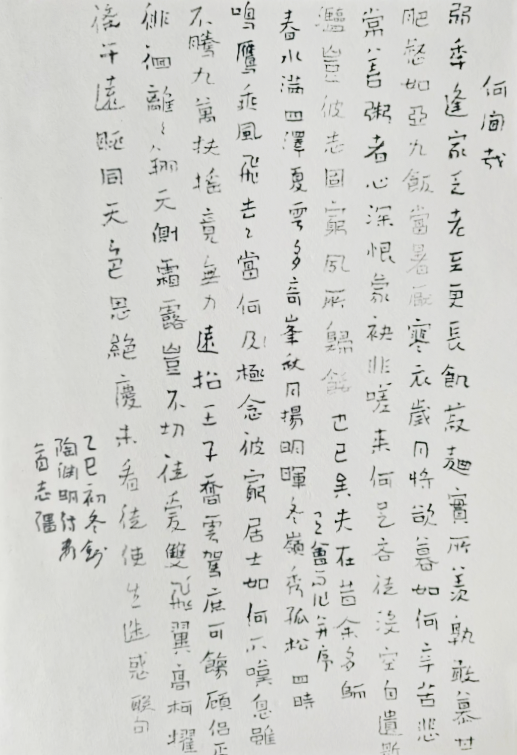 何哉
弱秊逢家乏老至更長飢菽麵實所羨孰敢慕甘
肥惄如亞九飯當暑厭寒衣歲月將欲暮如何辛苦悲
常善粥者心深恨蒙袂非嗟来何足吝徒沒空自遺斯
濫豈彼志固窮夙所歸餒也已矣夫在昔余多師
有會而作并序
春水滿四澤夏雲多奇峯秋月揚明暉冬嶺秀孤松 四時
鳴鴈乘風飛去々當何及極念彼窮居士如何不嘆息雖
不騰九萬扶搖竟無力遠招王子喬雲駕庶可飭顧侶正
徘徊離々翔天側霜露豈不切徒愛雙飛翼高柯擢
條幹遠眺同天色思絕慶未看徒使生迷惑 聯句
乙巳初冬鈔
陶淵明詩數
首志彊